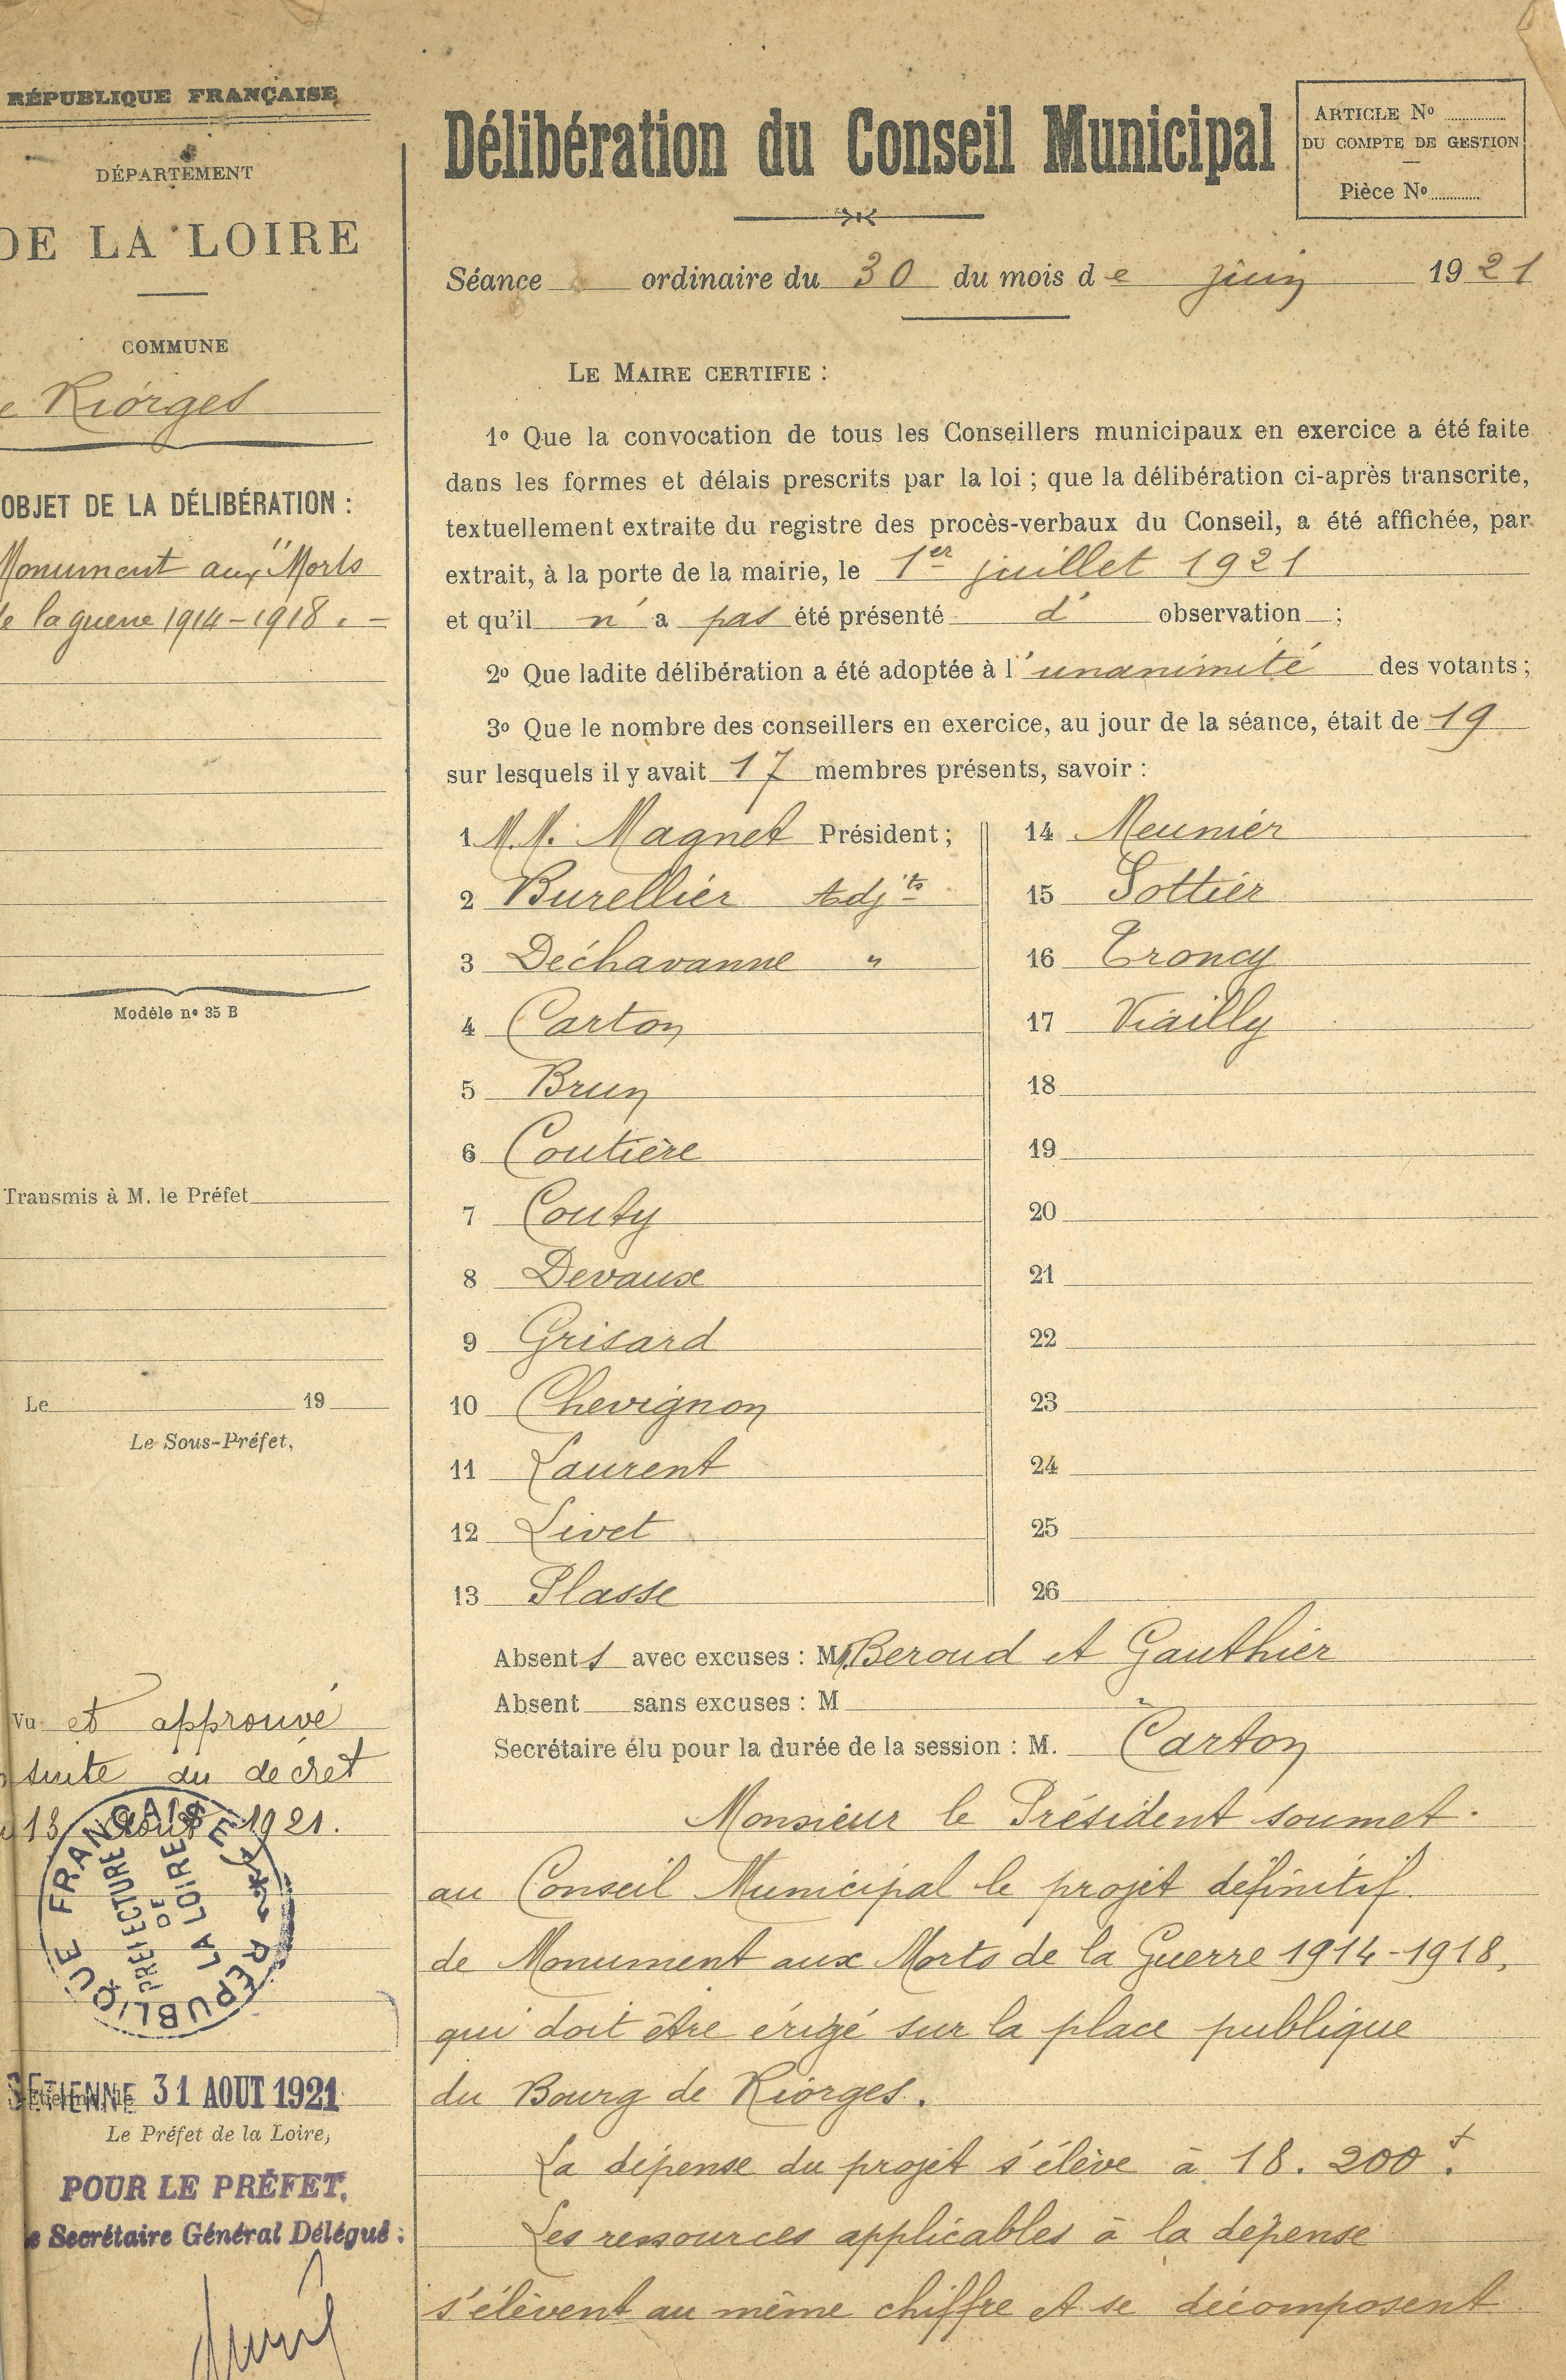 RÉPUBLIQUE FRANÇAISE
DÉPARTEMENT
DE LA LOIRE
COMMUNE
e Riorges
OBJET DE LA DÉLIBÉRATION :
Monument aux "Morts
de la guerre 1914-1918. -
Modèle nº 35 B
Transmis à M. le Préfet
Le 19
Le Sous-Préfet,
Vu et approuvé
suite du décret
13 Août 1921.
RÉPUBLIQUE FRANÇAISE
PRÉFECTURE
DE
LA LOIRE
ETIENNE 31 AOUT 1921
Le Préfet de la Loire,
POUR LE PRÉFET,
e Secrétaire Général Délégué :
Délibération du Conseil Municipal
ARTICLE Nº
DU COMPTE DE GESTION
Pièce Nº
Séance ordinaire du 30 du mois de juin 1921
LE MAIRE CERTIFIE :
1º Que la convocation de tous les Conseillers municipaux en exercice a été faite
dans les formes et délais prescrits par la loi ; que la délibération ci-après transcrite,
textuellement extraite du registre des procès-verbaux du Conseil, a été affichée, par
extrait, à la porte de la mairie, le 1er juillet 1921
et qu'il n'a pas été présenté d' observation ;
2º Que ladite délibération a été adoptée à l'unanimité des votants ;
3º Que le nombre des conseillers en exercice, au jour de la séance, était de 19
sur lesquels il y avait 17 membres présents, savoir :
1 M.M. Magnet Président ;
2 Burellier Adjts
3 Déchavanne "
4 Carton
5 Brun
6 Coutière
7 Couty
8 Devaux
9 Grisard
10 Chevignon
11 Laurent
12 Livet
13 Plasse
14 Meunier
15 Pottier
16 Troncy
17 Viailly
18
19
20
21
22
23
24
25
26
Absents avec excuses : MM. Beroud et Gauthier
Absent sans excuses : M
Secrétaire élu pour la durée de la session : M. Carton
Monsieur le Président soumet
au Conseil Municipal le projet définitif
de Monument aux Morts de la Guerre 1914-1918,
qui doit être érigé sur la place publique
du Bourg de Riorges.
La dépense du projet s'élève à 18.200f.
Les ressources applicables à la dépense
s'élèvent au même chiffre et se décomposent